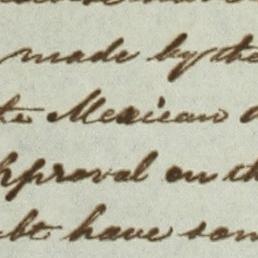 made by the
Mexican
approval on th
have som